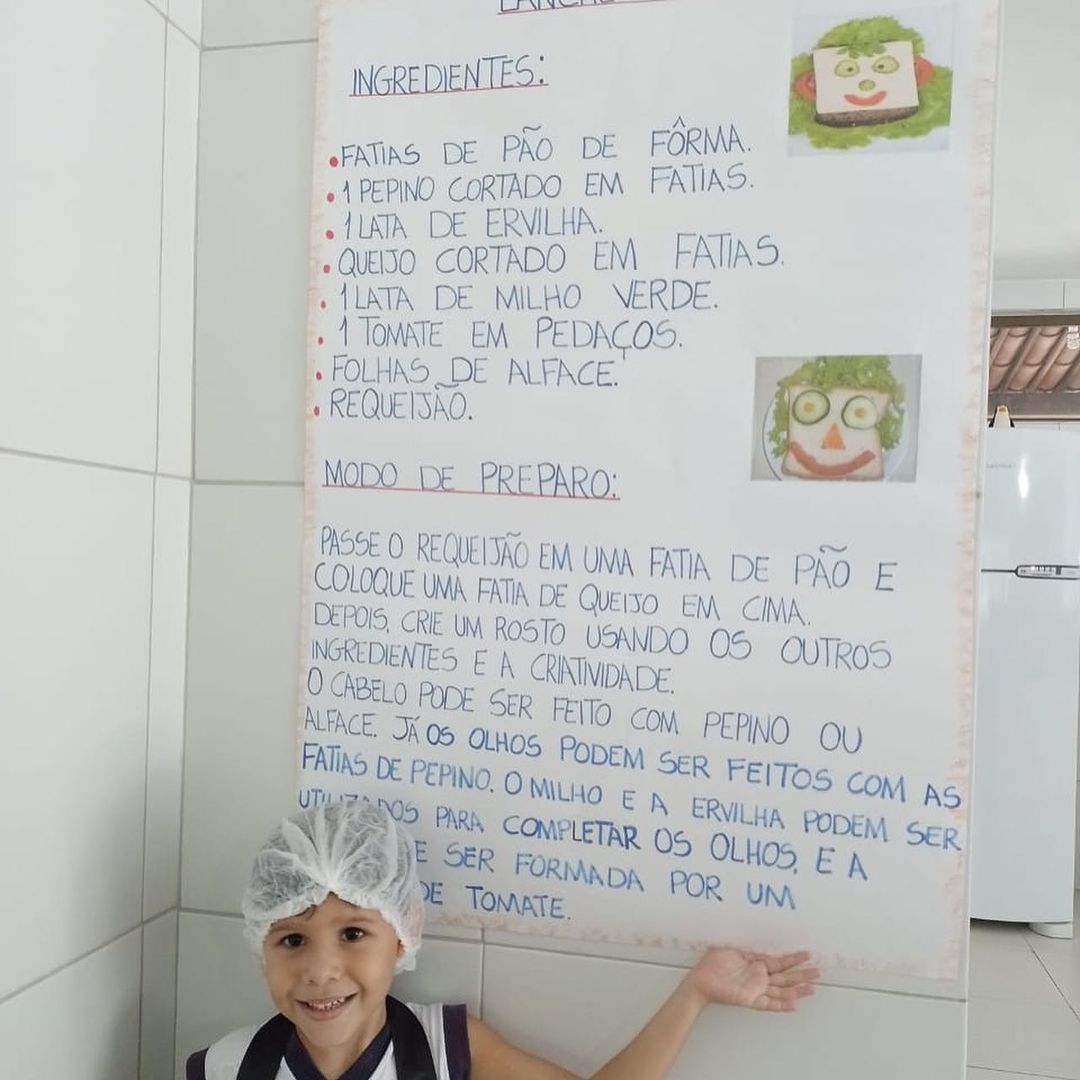 INGREDIENTES:
FATIAS DE PÃO DE FÔRMA.
1 PEPINO CORTADO EM FATIAS.
1 LATA DE ERVILHA.
QUEIJO CORTADO EM FATIAS.
1 LATA DE MILHO VERDE.
1 TOMATE EM PEDAÇOS.
FOLHAS DE ALFACE.
REQUEIJÃO.
MODO DE PREPARO:
PASSE O REQUEIJÃO EM UMA FATIA DE PÃO E
COLOQUE UMA FATIA DE QUEIJO EM CIMA.
DEPOIS, CRIE UM ROSTO USANDO OS OUTROS
INGREDIENTES E A CRIATIVIDADE.
O CABELO PODE SER FEITO COM PEPINO OU
ALFACE. JÁ OS OLHOS PODEM SER FEITOS COM AS
FATIAS DE PEPINO. O MILHO E A ERVILHA PODEM SER
UTILIZADOS PARA COMPLETAR OS OLHOS, E A
E SER FORMADA POR UM
DE TOMATE.